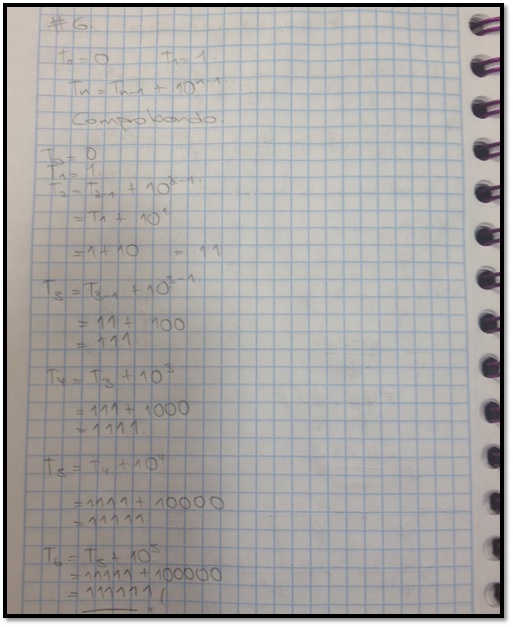 #6.
T₀=0 T₁=1.
Tn=Tn-1 + 10ⁿ⁻¹.
Comprobando.
T₀= 0
T₁= 1.
T₂=T₂₋₁ + 10²⁻¹.
=T₁ + 10¹
=1+10 = 11
T₃=T₃₋₁ +10³⁻¹.
= 11+ 100
= 111.
T₄= T₃ + 10³
= 111+ 1000
= 1111.
T₅= T₄ +10⁴
=1111+ 10000
=11111.
T₆= T₅ + 10⁵
=11111 +100000
= 111111